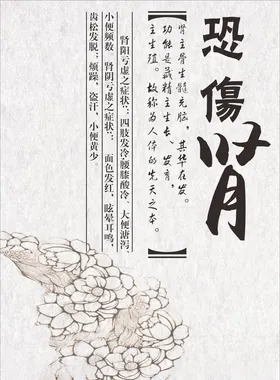 恐傷肾
【肾主骨生髓充脑，其华在发。
功能是藏精主生长、发育，
主生殖。故称为人体的先天之本。】
肾阳亏虚之症状：四肢发冷，腰膝酸冷、大便溏泻、
小便频数　肾阴亏虚之症状：　面色发红，眩晕耳鸣，
齿松发脱、烦躁、盗汗，小便黄少。